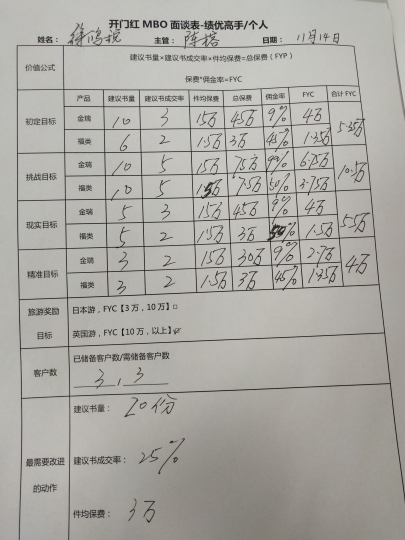 开门红 MBO 面谈表-绩优高手/个人
姓名： 徐鸣悦 主管： 陈榕 日期： 11月14日
价值公式 建议书量×建议书成交率×件均保费=总保费（FYP）
保费*佣金率=FYC
产品 建议书量 建议书成交率 件均保费 总保费 佣金率 FYC 合计 FYC
初定目标 金瑞 10 3 15万 45万 9% 4万 5.35万
福类 6 2 1.5万 3万 45% 1.35万
挑战目标 金瑞 10 5 15万 75万 9% 6.75万 10.5万
福类 10 5 1.5万 7.5万 50% 3.75万
现实目标 金瑞 5 3 15万 45万 9% 4万 5.5万
福类 5 2 1.5万 3万 50% 1.5万
精准目标 金瑞 3 2 15万 30万 9% 2.7万 4万
福类 3 2 1.5万 3万 45% 1.35万
旅游奖励 日本游，FYC【3万，10万】□
目标 英国游，FYC【10万，以上】☑
客户数 已储备客户数/需储备客户数
3 , 3
建议书量： 20份
最需要改进 建议书成交率： 25%
的动作
件均保费： 3万